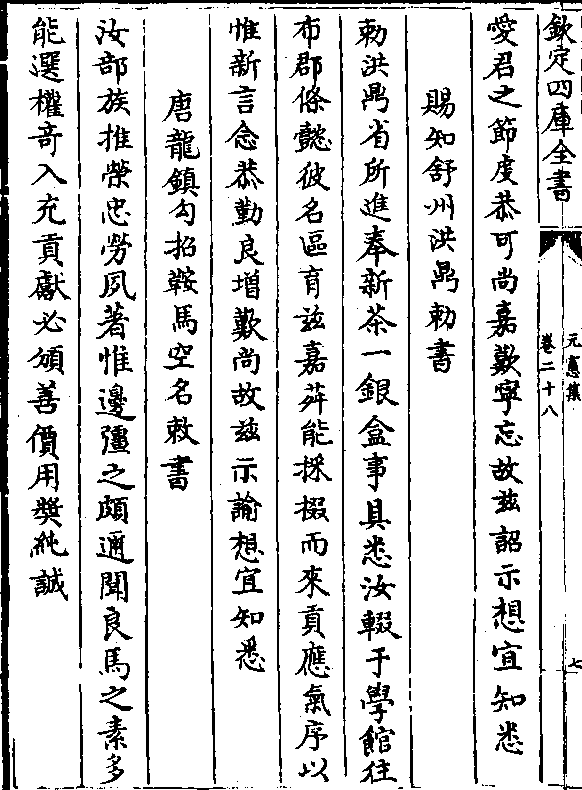 欽定四庫全書
元憲集
卷二十八
七
愛君之節度恭可尚嘉歎寧忘故兹詔示想宜知悉
賜知舒州洪鼎勅書
勅洪鼎省所進奉新茶一銀盒事具悉汝輟于學館往
布郡條懿彼名區育兹嘉荈能採掇而來貢應氣序以
惟新言念恭勤良增歎尚故兹示諭想宜知悉
唐龍鎮勾招鞍馬空名敕書
汝部族推榮忠勞夙著惟邊彊之頗邇聞良馬之素多
能選權奇入充貢獻必頒善價用獎純誠